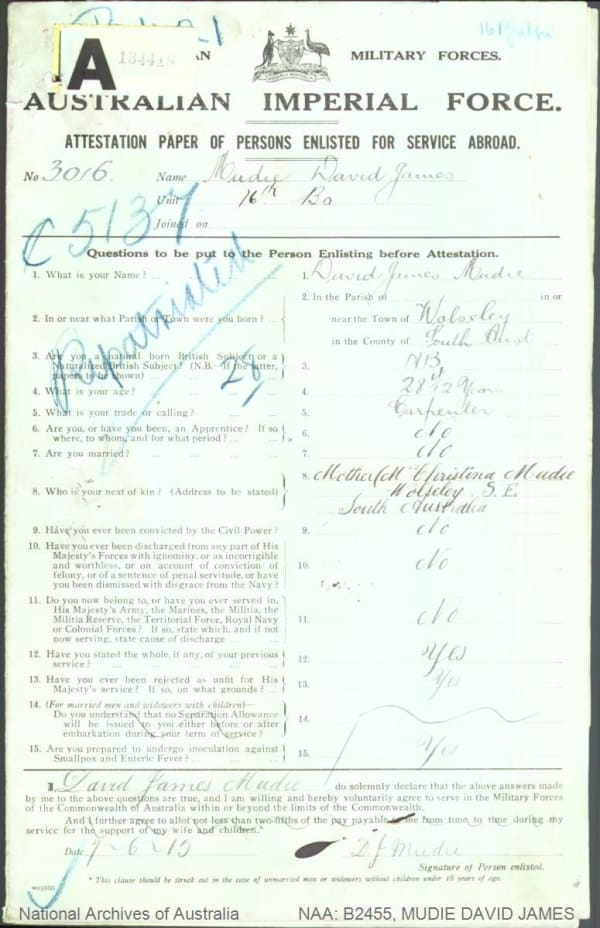 A
134418
AN MILITARY FORCES.
AUSTRALIAN IMPERIAL FORCE.
ATTESTATION PAPER OF PERSONS ENLISTED FOR SERVICE ABROAD.
No 3016. Name Mudie David James
Unit 16th Bn
Joined on
C 5137
Repatriated
28
Questions to be put to the Person Enlisting before Attestation.
1. What is your Name? ... 1. David James Mudie
2. In or near what Parish or Town were you born? ... 2. In the Parish of in or
near the Town of Wolseley
in the County of South Aust
3. Are you a natural born British Subject or a
Naturalized British Subject? (N.B.—If the latter,
papers to be shown) 3. NB
4. What is your age? 4. 28 4/12 Years
5. What is your trade or calling? 5. Carpenter
6. Are you, or have you been, an Apprentice? If so
where, to whom, and for what period? ... 6. No
7. Are you married? 7. No
8. Who is your next of kin? (Address to be stated) 8. Mother (M Christina Mudie
Wolseley S.E.
South Australia
9. Have you ever been convicted by the Civil Power? 9. No
10. Have you ever been discharged from any part of His
Majesty's Forces with ignominy, or as incorrigible
and worthless, or on account of conviction of
felony, or of a sentence of penal servitude, or have
you been dismissed with disgrace from the Navy? 10. No
11. Do you now belong to, or have you ever served in,
His Majesty's Army, the Marines, the Militia, the
Militia Reserve, the Territorial Force, Royal Navy
or Colonial Forces? If so, state which, and if not
now serving, state cause of discharge ... 11. No
12. Have you stated the whole, if any, of your previous
service? ... 12. Yes
13. Have you ever been rejected as unfit for His
Majesty's service? If so, on what grounds? ... 13. Yes
14. (For married men and widowers with children)—
Do you understand that no Separation Allowance
will be issued to you either before or after
embarkation during your term of service? 14.
15. Are you prepared to undergo inoculation against
Smallpox and Enteric Fever? ... 15. Yes
I, David James Mudie do solemnly declare that the above answers made
by me to the above questions are true, and I am willing and hereby voluntarily agree to serve in the Military Forces
of the Commonwealth of Australia within or beyond the limits of the Commonwealth.
And I further agree to allot not less than two-fifths of the pay payable to me from time to time during my
service for the support of my wife and children.*
Date 9-6-15 D J Mudie
Signature of Person enlisted.
* This clause should be struck out in the case of unmarried men or widowers without children under 18 years of age.
National Archives of Australia NAA: B2455, MUDIE DAVID JAMES